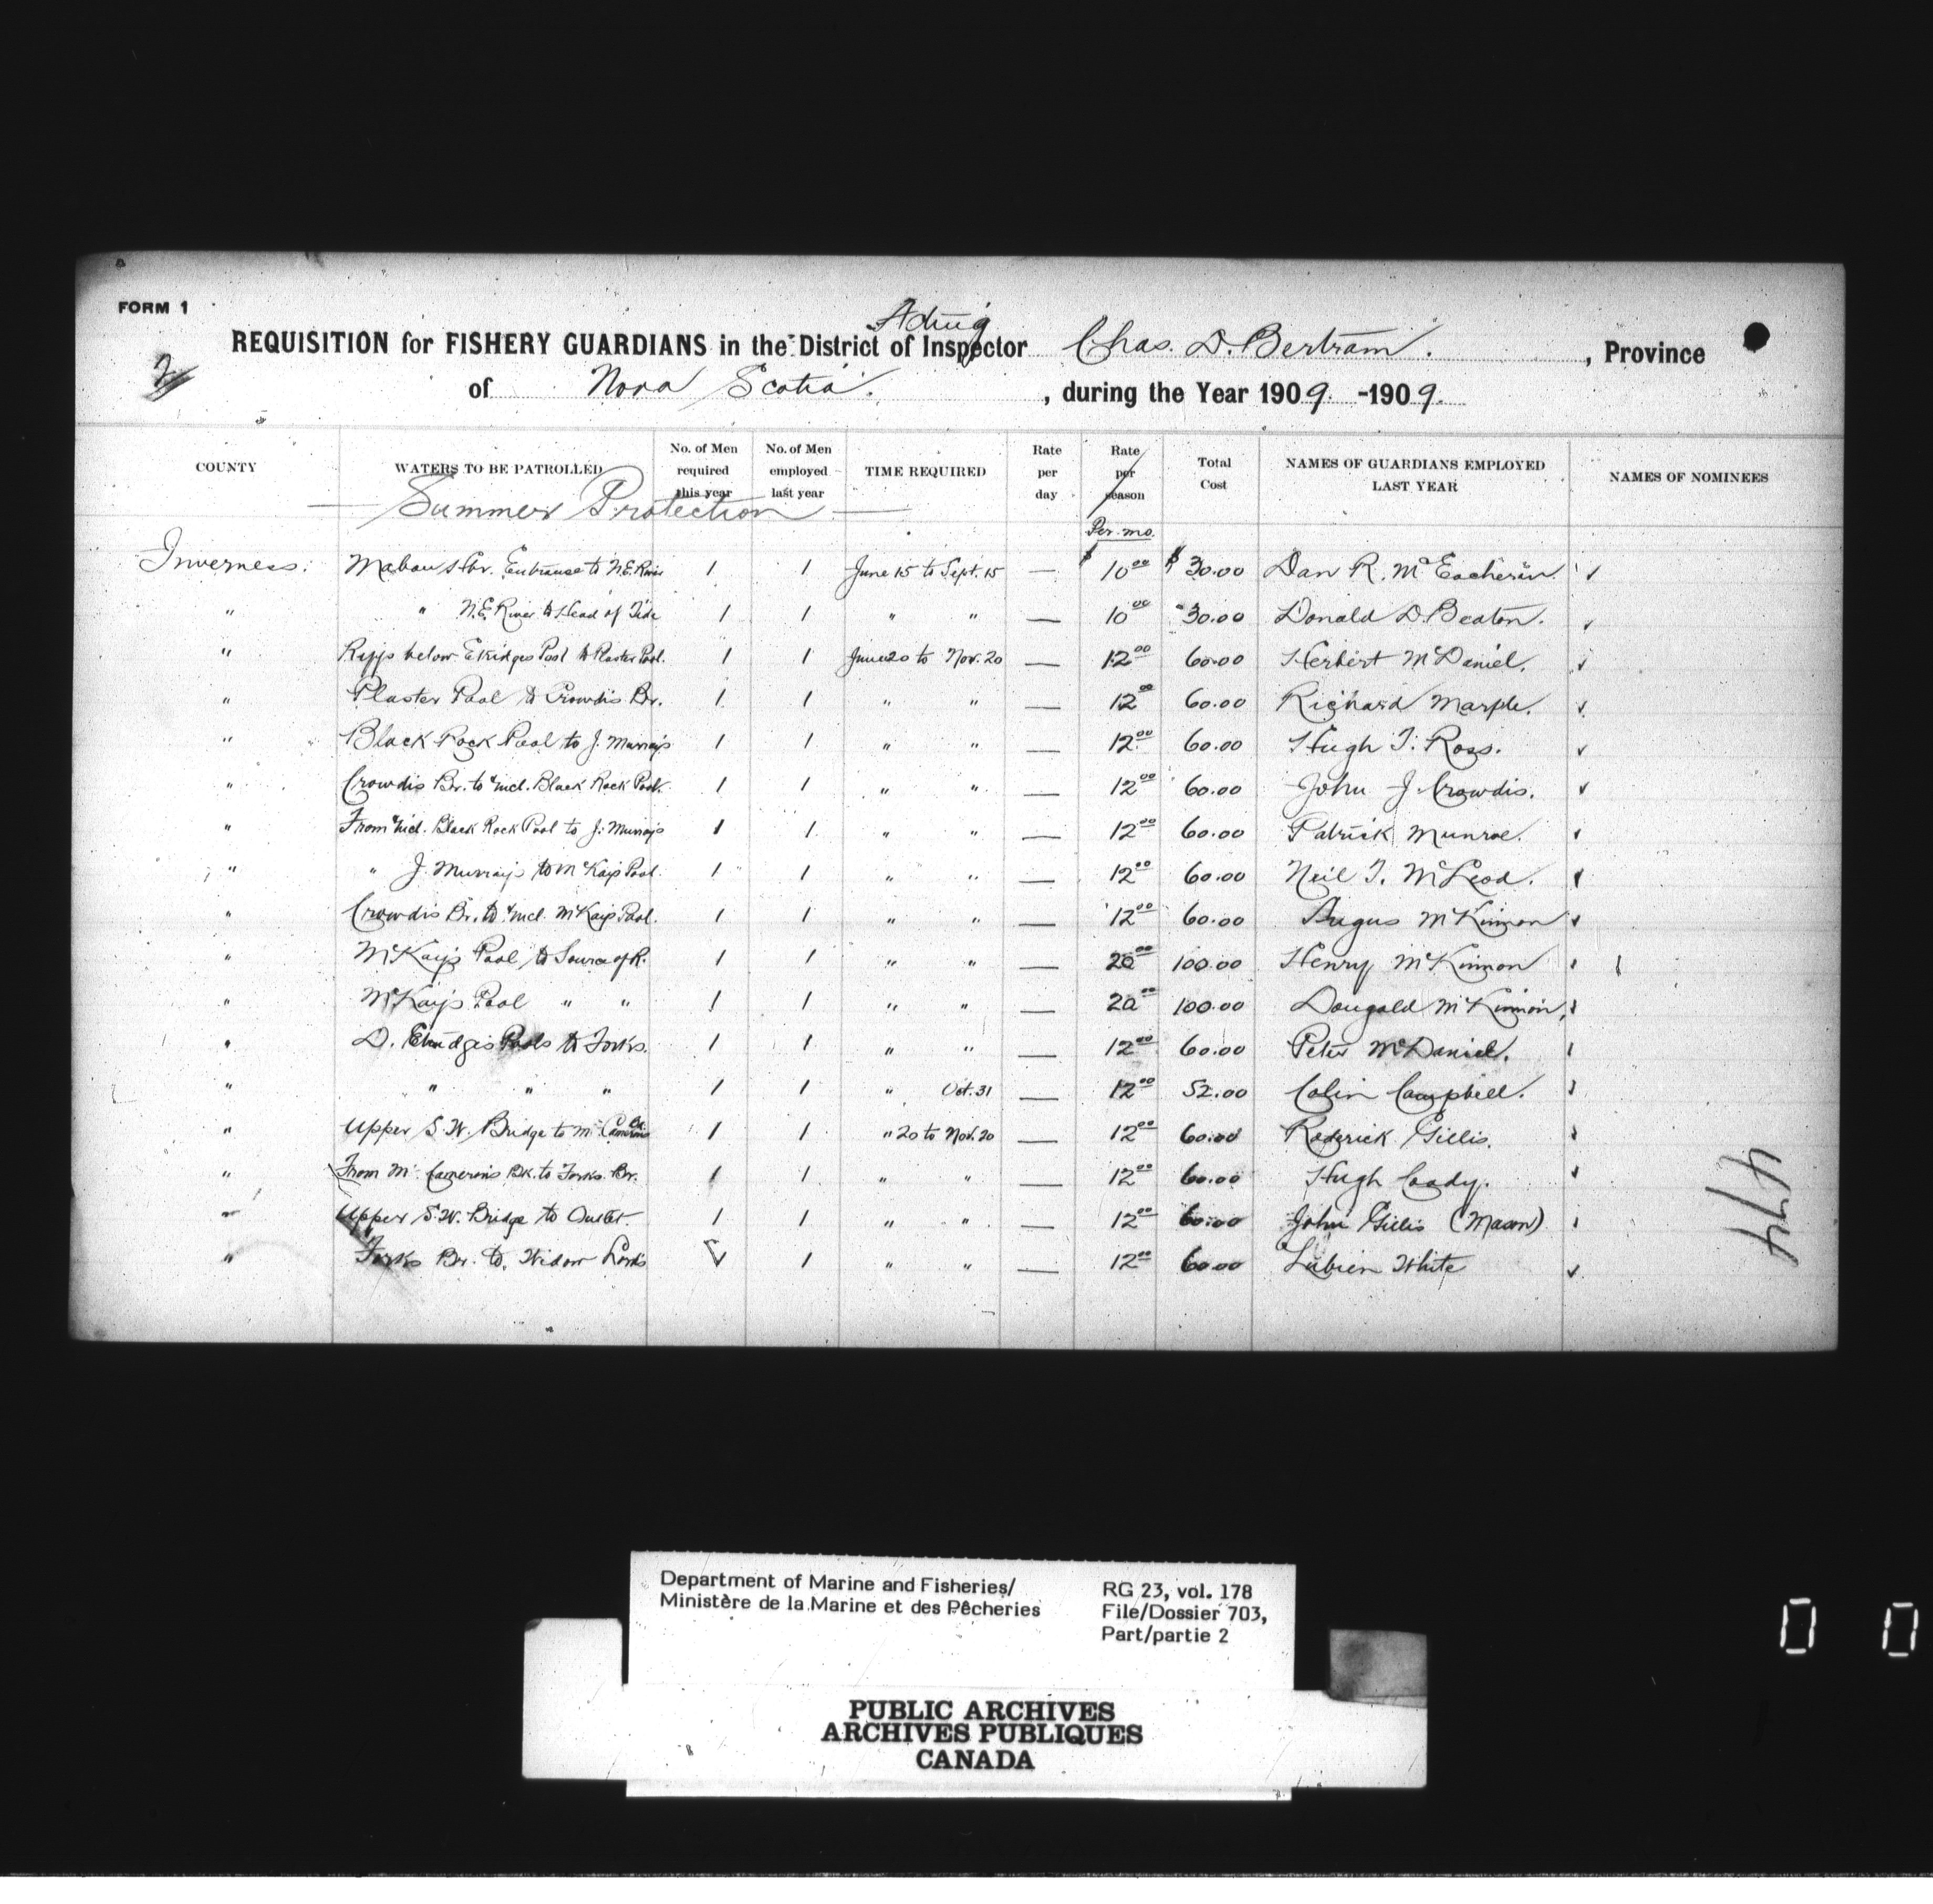 FORM 1
Acting
REQUISITION for FISHERY GUARDIANS in the District of Inspector Chas. D. Bertram. , Province
2
of Nova Scotia. , during the Year 1909. -1909.
COUNTY WATERS TO BE PATROLLED No. of Men required this year No. of Men employed last year TIME REQUIRED Rate per day Rate per season Total Cost NAMES OF GUARDIANS EMPLOYED LAST YEAR NAMES OF NOMINEES
Summer Protection
Per mo.
Inverness. Mabou Hbr. Entrance to N.E. River 1 1 June 15 to Sept. 15 — $ 10 00 $ 30.00 Dan R. McEacherin
" " N.E. River to Head of Tide 1 1 " " — 10 00 30.00 Donald D. Beaton.
" Ripps below Etridges Pool to Plaster Pool. 1 1 June 20 to Nov. 20 — 12 00 60.00 Herbert McDaniel.
" Plaster Pool to Crowdis Br. 1 1 " " — 12 00 60.00 Richard Marple.
" Black Rock Pool to J. Murray's 1 1 " " — 12 00 60.00 Hugh T. Ross.
" Crowdis Br. to & incl. Black Rock Pool. 1 1 " " — 12 00 60.00 John J. Crowdis.
" From & incl. Black Rock Pool to J. Murray's 1 1 " " — 12 00 60.00 Patrick Munroe.
" " J. Murray's to McKays Pool. 1 1 " " — 12 00 60.00 Neil T. McLeod.
" Crowdis Br. to & incl. McKays Pool. 1 1 " " — 12 00 60.00 Angus McKinnon
" McKays Pool to Source of R. 1 1 " " — 20 00 100.00 Henry McKinnon
" McKays Pool " " 1 1 " " — 20 00 100.00 Dougald McKinnon,
" D. Etridges Pools to Forks. 1 1 " " — 12 00 60.00 Peter McDaniel.
" " " " 1 1 " Oct. 31 — 12 00 52.00 Colin Campbell.
" Upper S.W. Bridge to McCamerons Bk. 1 1 " 20 to Nov. 20 — 12 00 60.00 Roderick Gillis.
" From Mc Camerons Bk. to Forks Br. 1 1 " " — 12 00 60.00 Hugh Coady.
" Upper S.W. Bridge to Outlet. 1 1 " " — 12 00 60.00 John Gillis (Mason)
" Forks Br. to Widow Lords 1 1 " " — 12 00 60.00 Lubien White
474
Department of Marine and Fisheries/
Ministère de la Marine et des Pêcheries
RG 23, vol. 178
File/Dossier 703,
Part/partie 2
PUBLIC ARCHIVES
ARCHIVES PUBLIQUES
CANADA
0 0